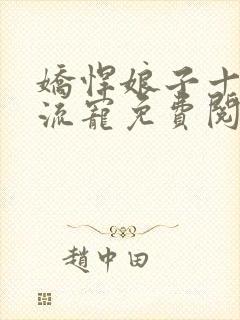 嬌悍娘子十
流寵免費閱
趙中田